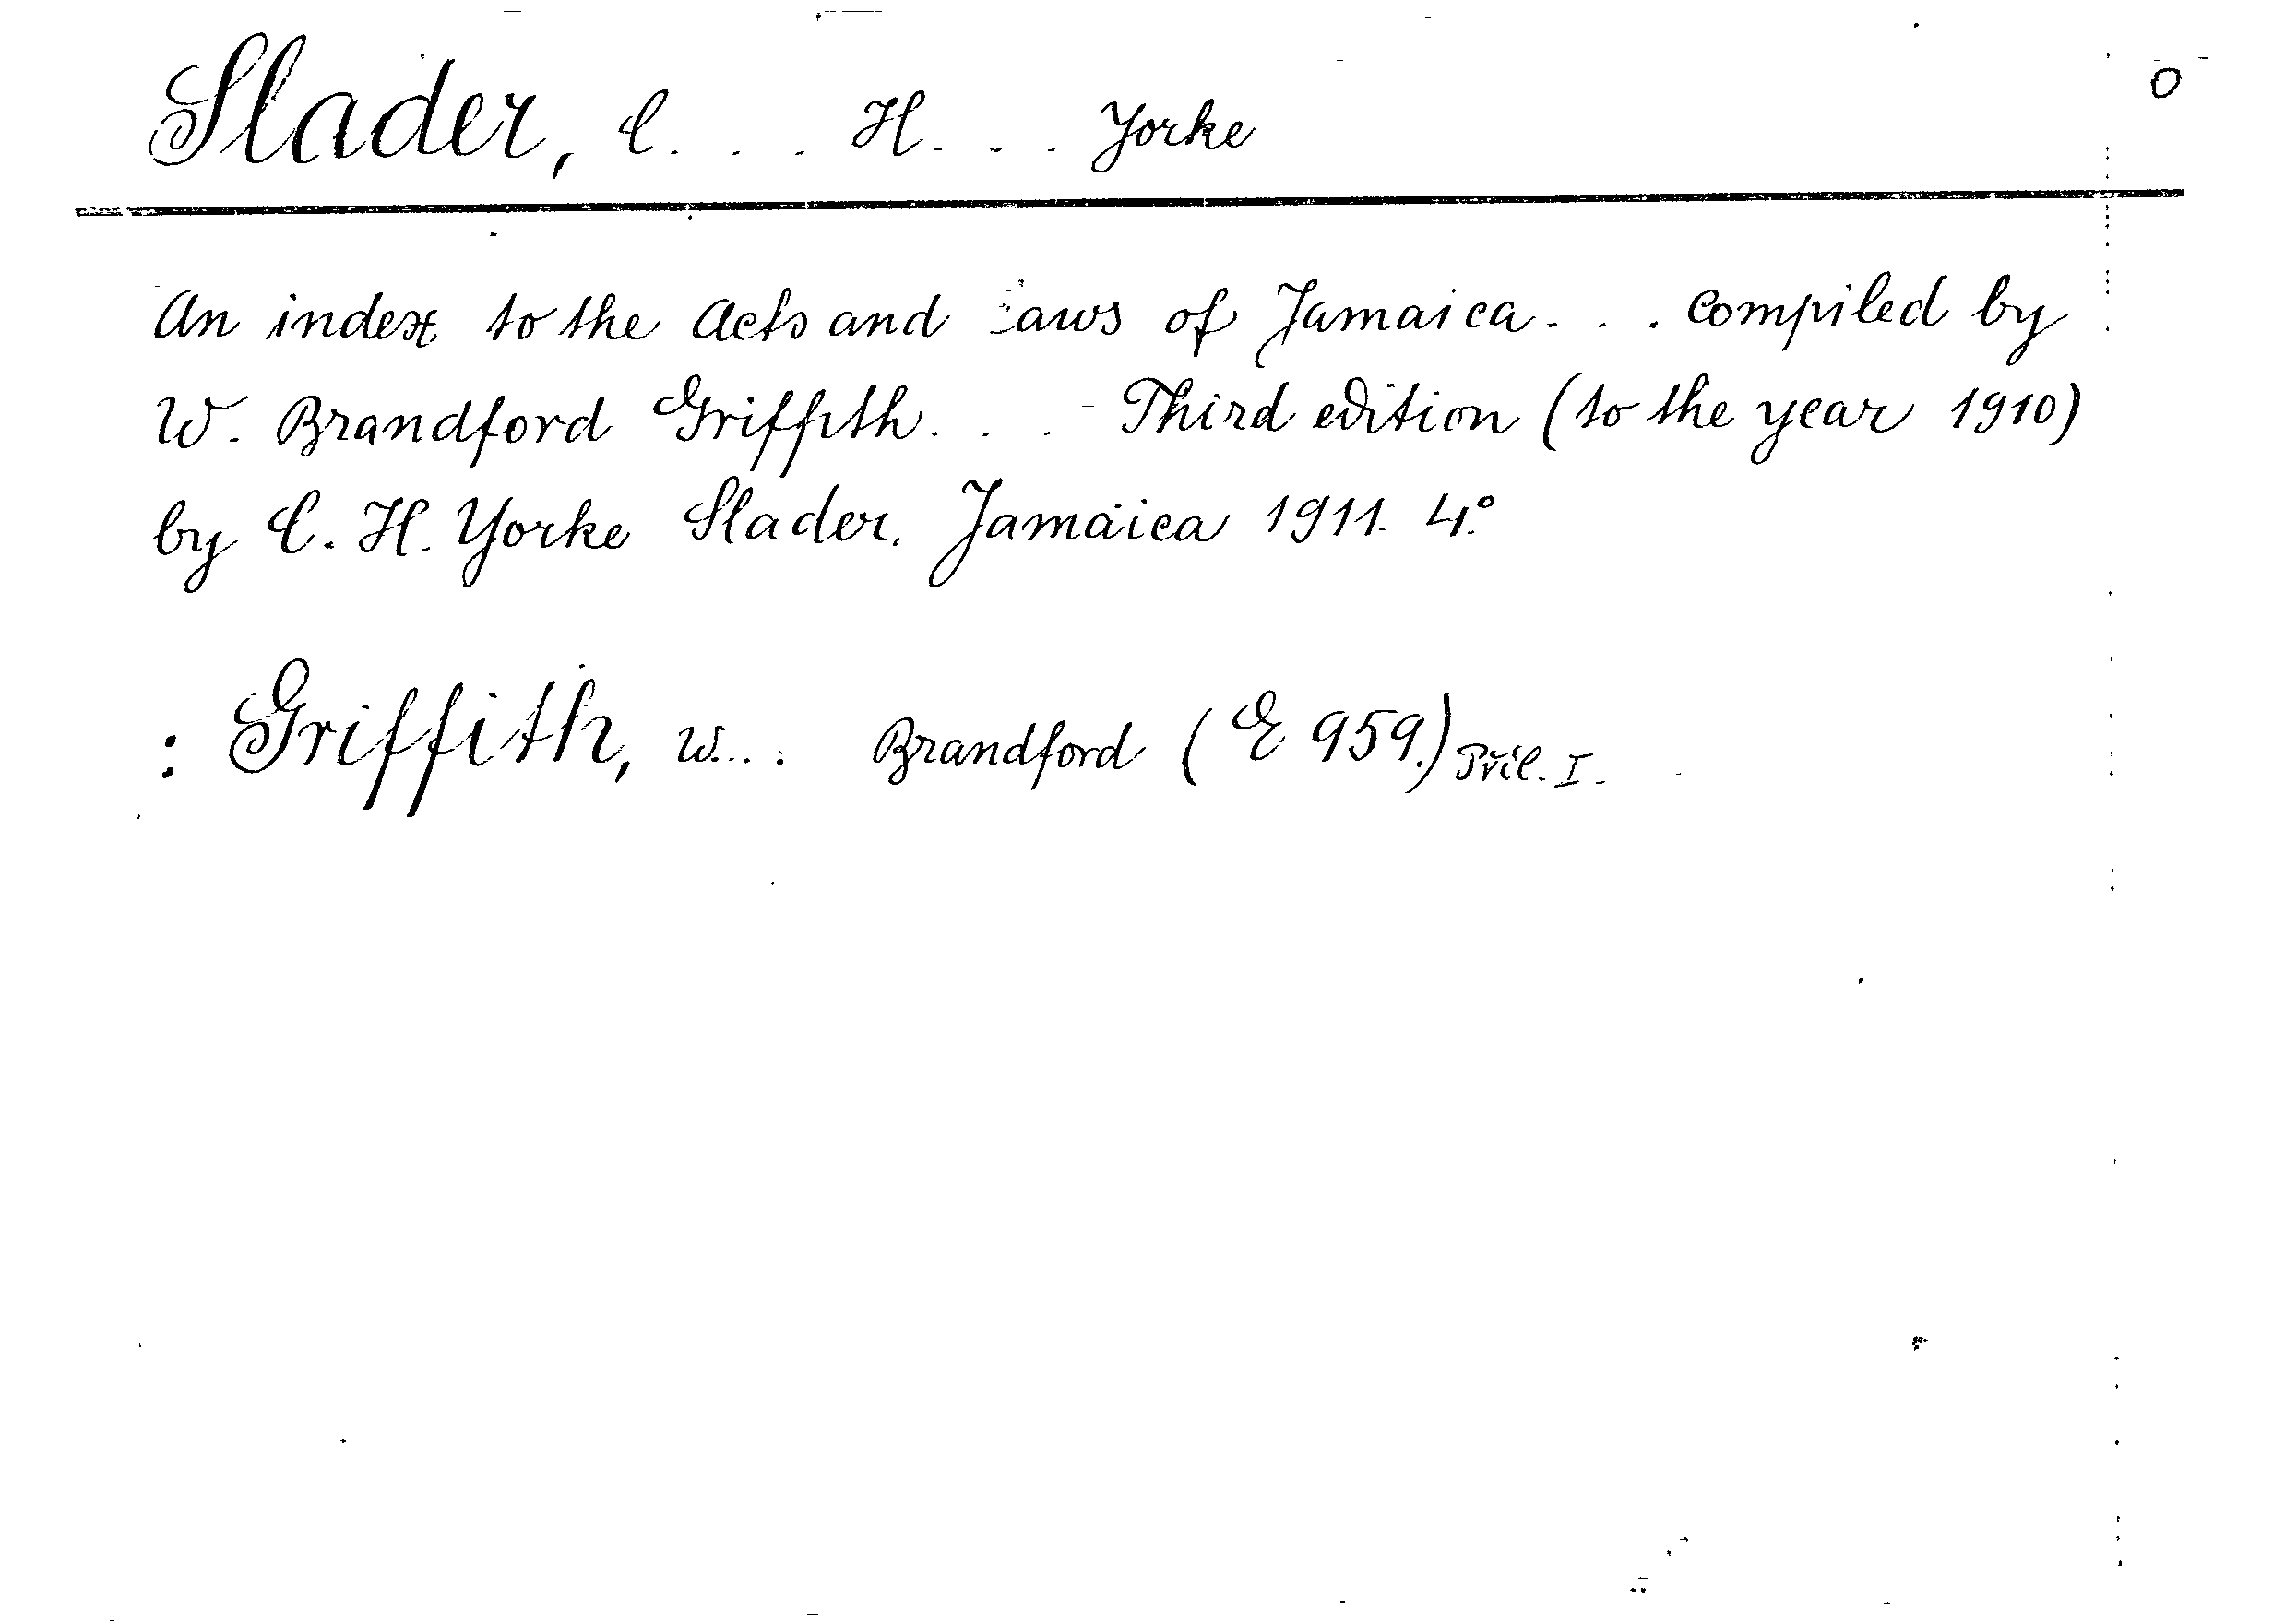 Slader, C. . . H. . . Yorke
O
An index to the Acts and Laws of Jamaica. . . compiled by
W. Brandford Griffith. . . - Third edition (to the year 1910)
by C. H. Yorke Slader. Jamaica 1911. 4°.
: Griffith, W... . Brandford (E 959.) Příl. I.